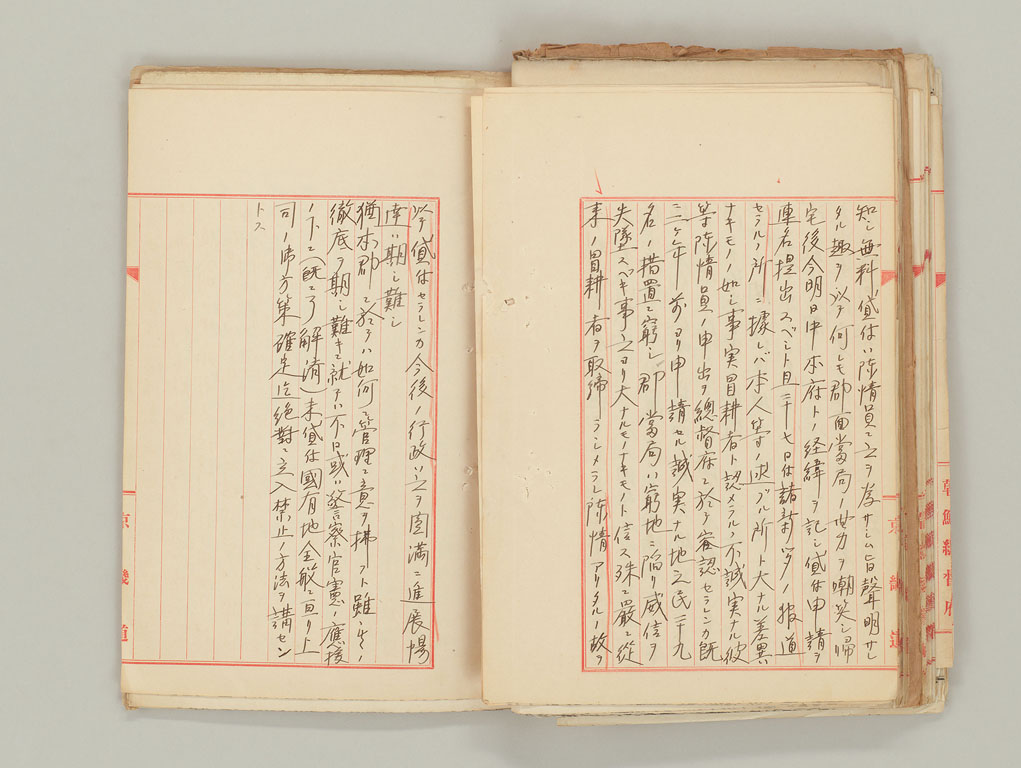 知シ無料貸付ハ陳情員ニ之ヲ為サシム旨聲明サレ
タル趣ヲ以テ何レモ郡面當局ノ努力ヲ嘲笑シ歸
宅後今明日中本府トノ経緯ヲ記シ貸付申請ヲ
連名提出スベシト且二十七日付諸新聞ノ報道
セラルヽ所ニ據レバ本人等ノ述ブル所ト大ナル差異
ナキモノノ如シ事実冒耕者ト認メラルヽ不誠実ナル彼
等陳情員ノ申出ヲ總督府ニ於テ容認セラレンカ既
ニ二ケ年前ヨリ申請セル誠実ナル地元民三十九
名ノ措置ニ窮シ郡當局ハ窮地ニ陥リ威信ヲ
失墜スベキ事之ヨリ大ナルモノナキモノト信ス殊ニ嚴ニ從
来ノ冒耕者ヲ取締ランメラレ陳情アリタルノ故ヲ
以テ貸付セラレンカ今後ノ行政ハ之ヲ圓満ニ進展暢
達ハ期シ難シ
猶本郡ニ於テハ如何ニ管理ニ意ヲ拂フト雖モ之ノ
徹底ヲ期シ難キニ就テハ不日或ハ警察官憲ノ應援
ノ下ニ(既ニ了解済)未貸付國有地全般ニ亘リ上
司ノ御方策確定迄絶對ニ立入禁止ノ方法ヲ講セン
トス
京畿道
京畿道
朝鮮総督府